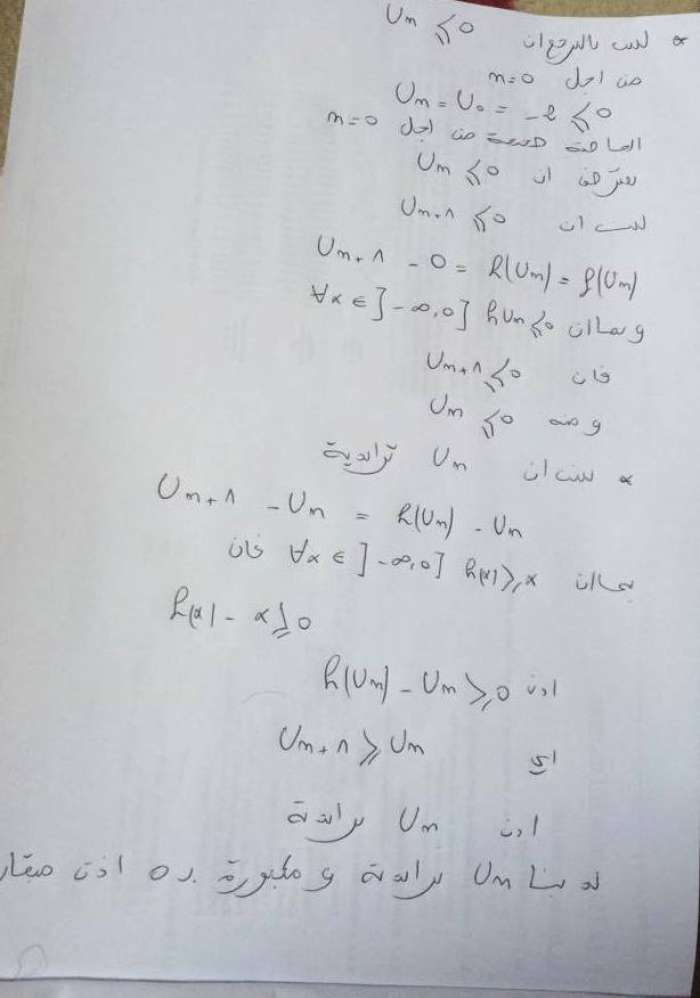 * لنبين بالترجع ان Un ≤ 0
من اجل n=0
Un = U0 = -2 ≤ 0
الخاصية صحيحة من اجل n=0
نفترض ان Un ≤ 0
لنبين ان Un+1 ≤ 0
Un+1 - 0 = h(Un) = f(Un)
و بما ان hUn ≤ 0 ∀x ∈ ]-∞,0]
فان Un+1 ≤ 0
و منه Un ≤ 0
* لنبين ان Un تزايدية
Un+1 - Un = h(Un) - Un
بما ان h(x) ≥ x ∀x ∈ ]-∞,0] فان
h(x) - x ≥ 0
اذن h(Un) - Un ≥ 0
اي Un+1 ≥ Un
اذن Un تزايدية
لدينا Un تزايدية و مكبورة ب 0 اذن